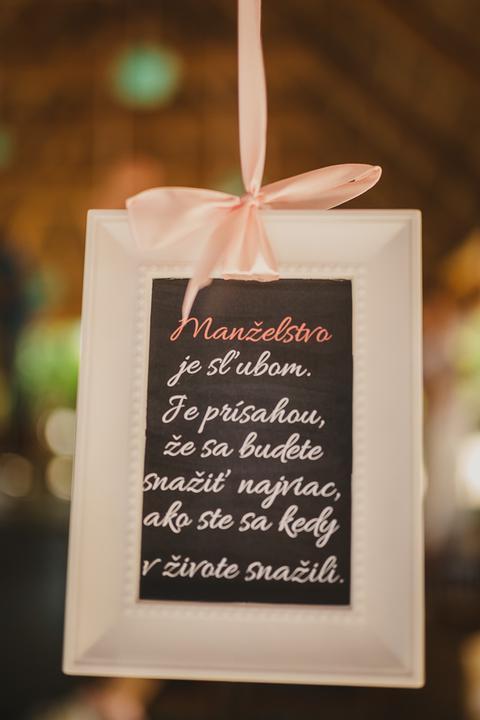 Manželstvo
je sľubom.
Je prísahou,
že sa budete
snažiť najviac,
ako ste sa kedy
v živote snažili.